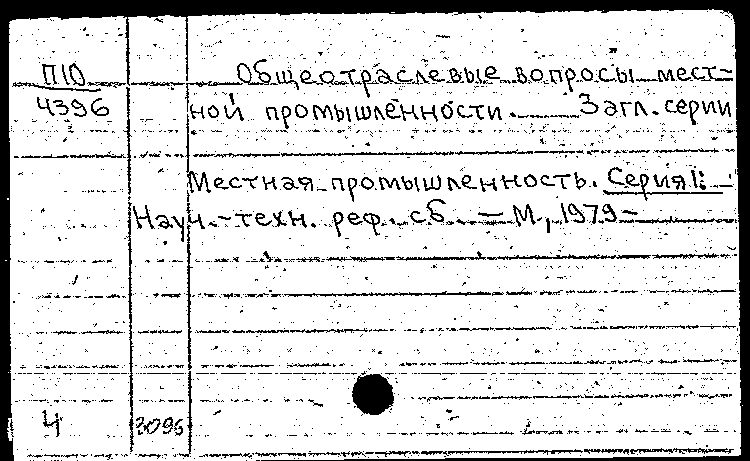 П10
4396
Общеотраслевые вопросы мест-
ной промышленности. Загл. серии
Местная промышленность. Серия I:
Науч.-техн. реф. сб. — М., 1979-
4 3096